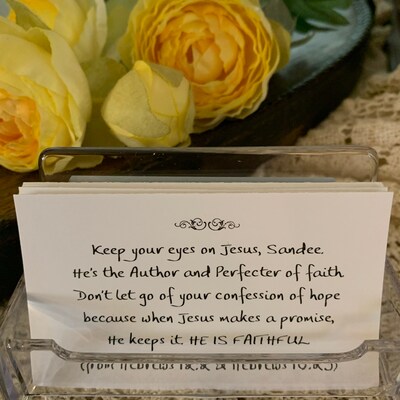 Keep your eyes on Jesus, Sandee.
He's the Author and Perfecter of faith.
Don't let go of your confession of hope
because when Jesus makes a promise,
He keeps it. HE IS FAITHFUL
(from Hebrews